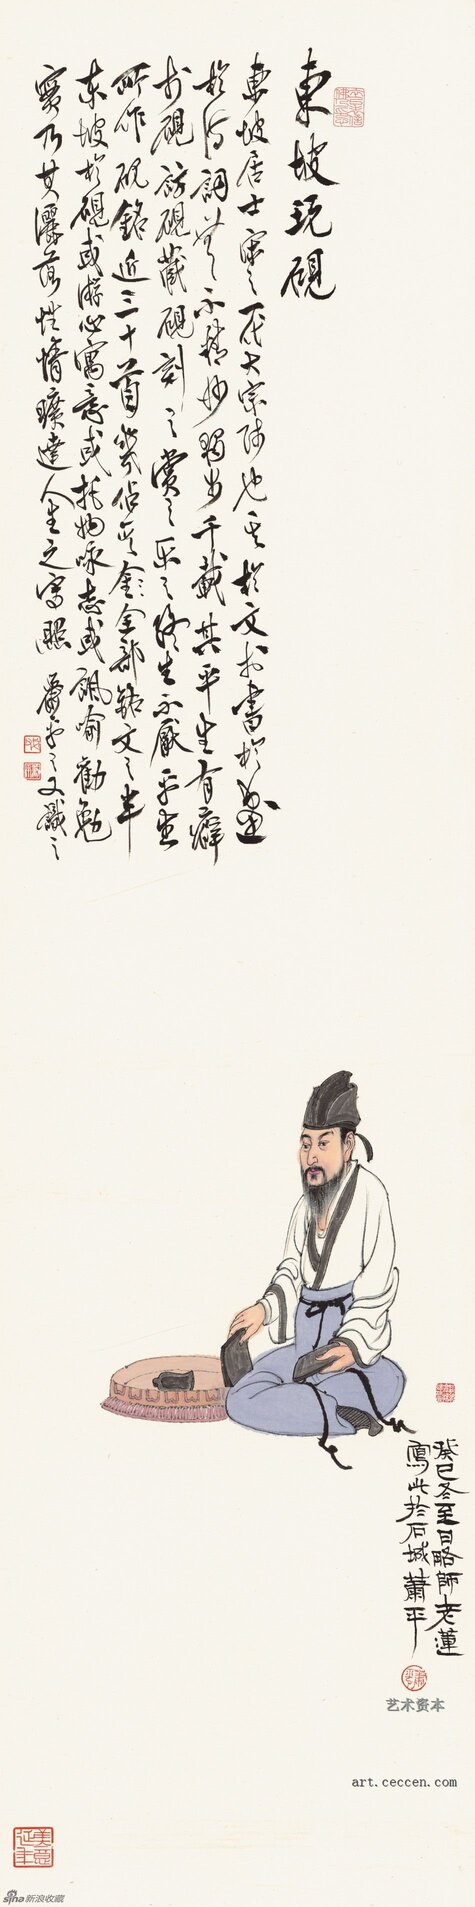 東坡玩硯
東坡居士宋之一代大宗師也其於文於書於畫
於詩詞無不精妙獨步千載其平生有癖
於硯訪硯藏硯刻之賞之樂之終生不厭平生
所作硯銘近三十首幾佔其全部銘文之半
東坡於硯或游心寓意或托物詠志或諷喻勸勉
實乃其灑落性情曠達人生之寫照 蕭平之又識之
癸巳冬至日略師老蓮
寫此於石城蕭平
艺术资本
art.ceccen.com
美意延年
sina新浪收藏